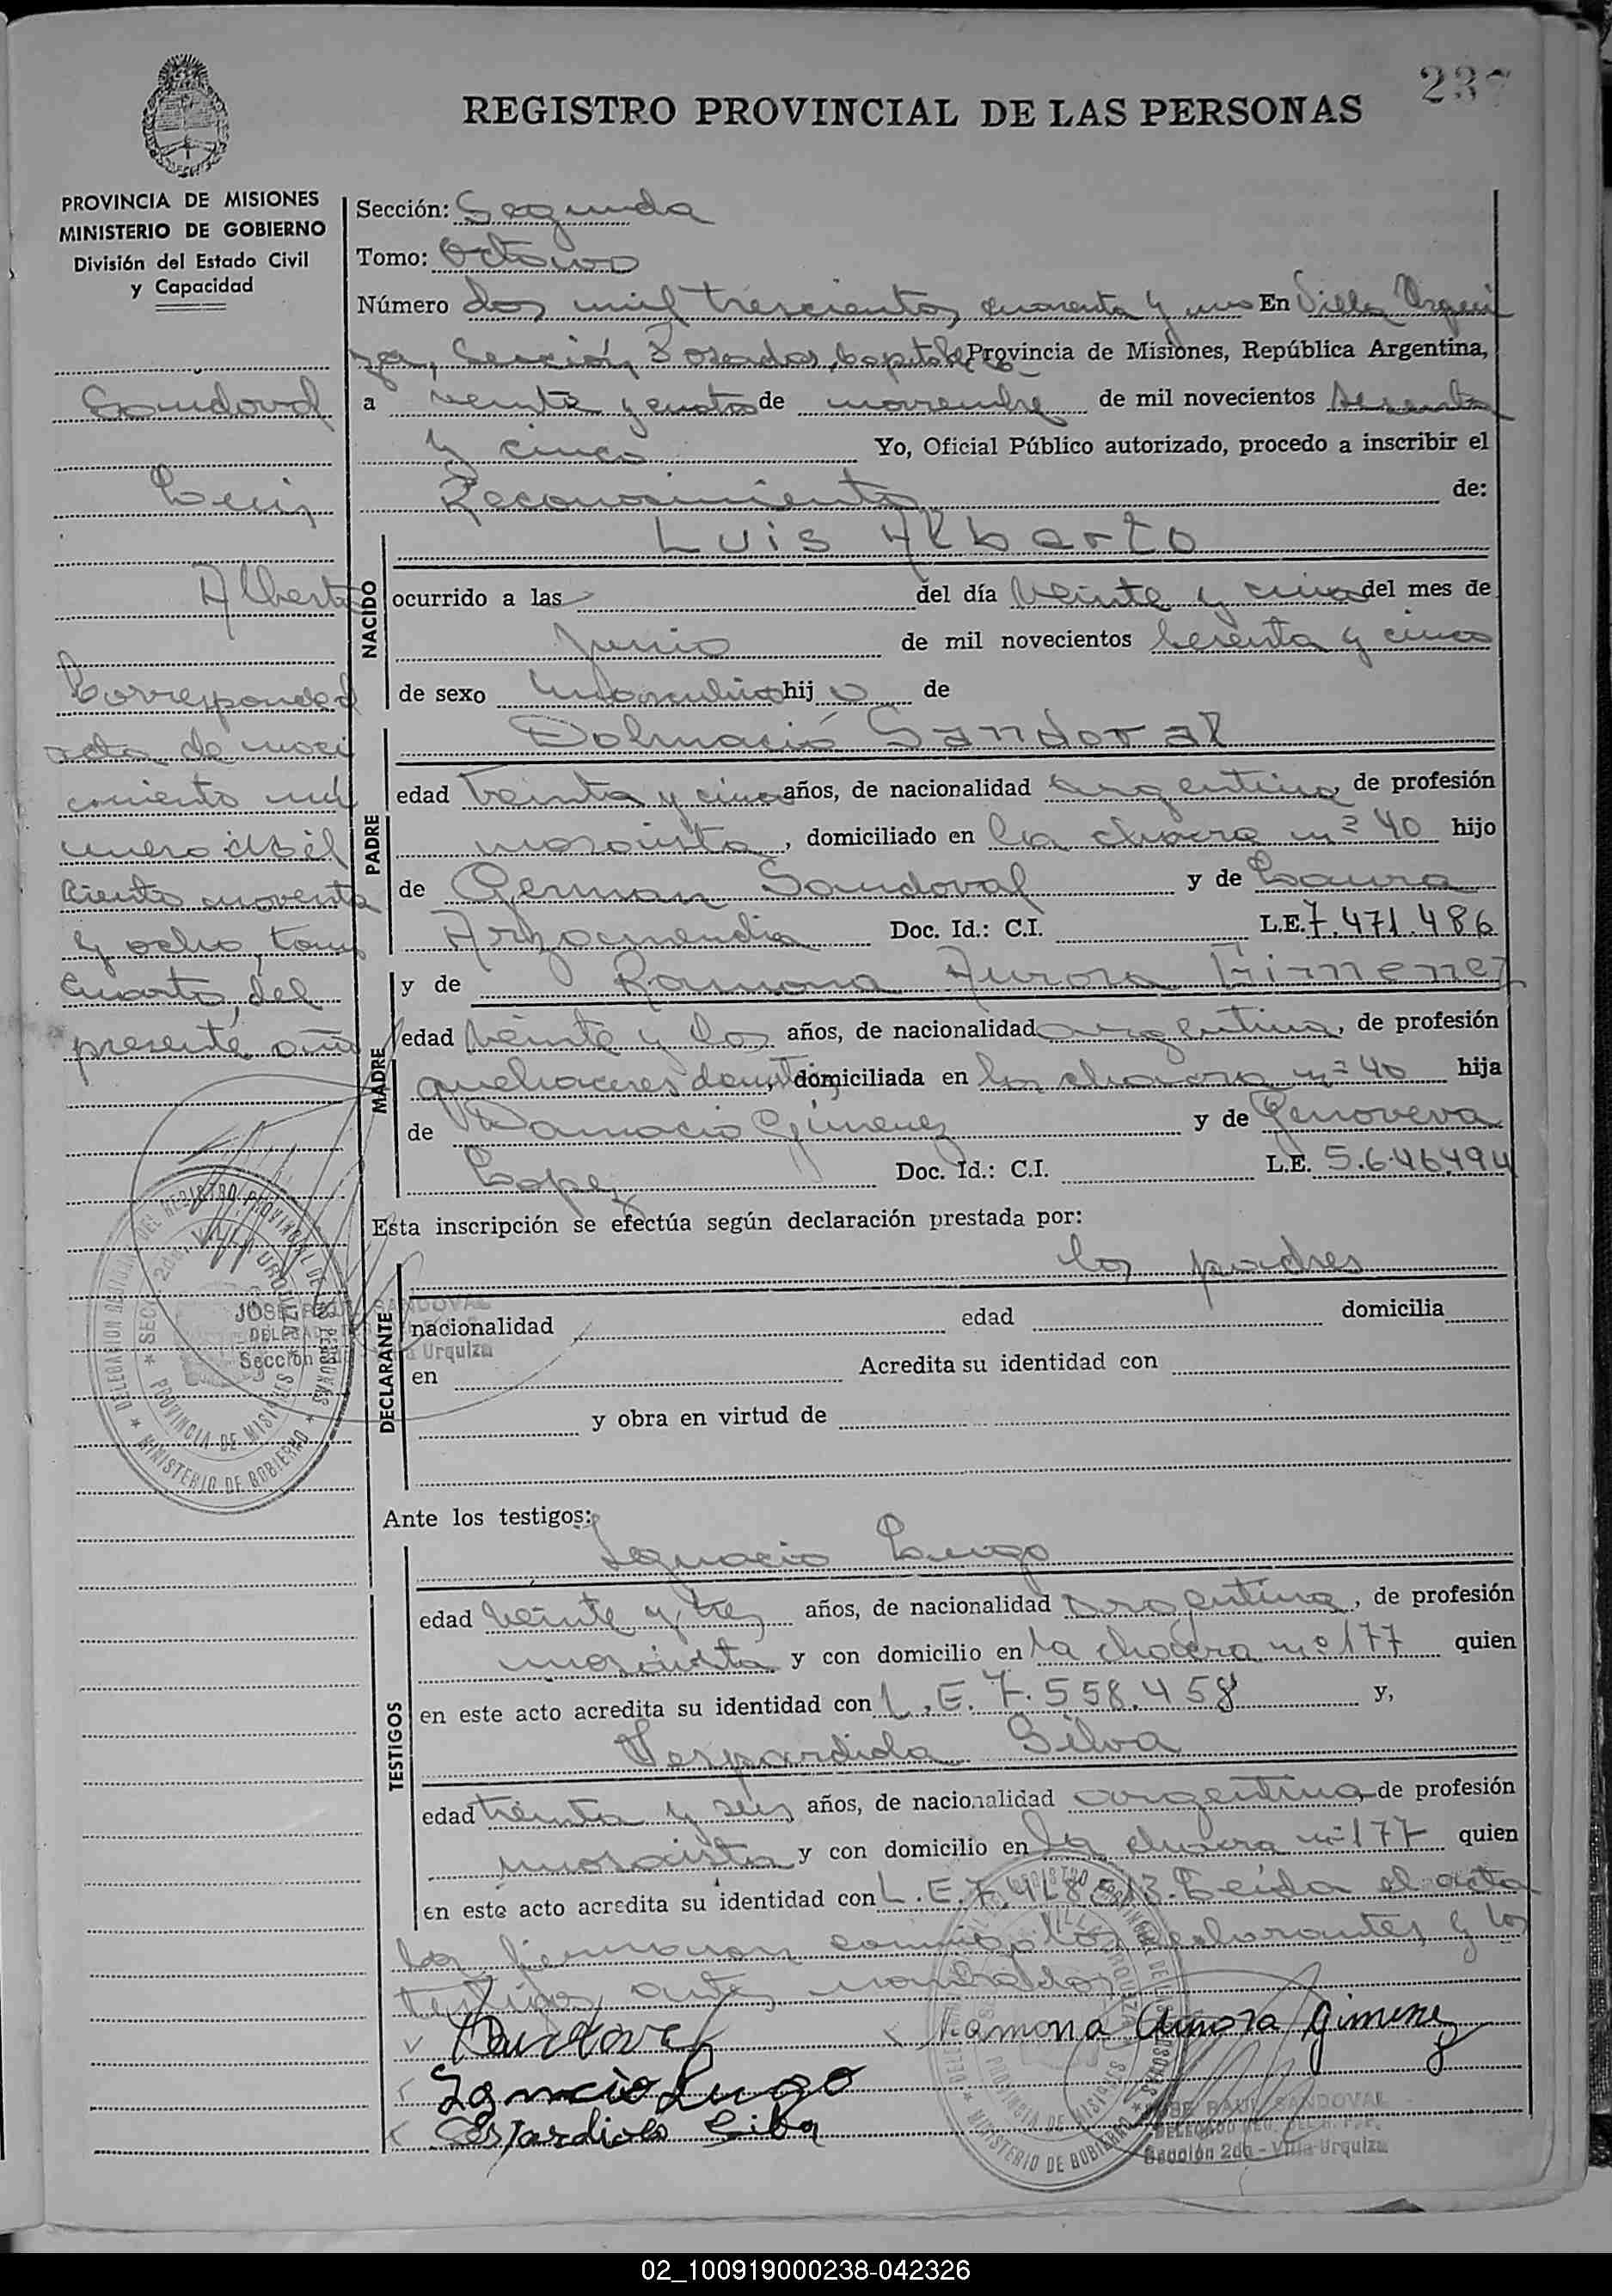 237
REGISTRO PROVINCIAL DE LAS PERSONAS
PROVINCIA DE MISIONES
MINISTERIO DE GOBIERNO
División del Estado Civil
y Capacidad
Sandoval
Luis
Alberto
Corresponde al
acta de naci
miento nú
mero
ciento noventa
y ocho, tomo
cuarto, del
presente año
Sección: Segunda
Tomo: Octavo
Número dos mil trescientos cuarenta y uno En Villa Urqui
za, Sección, Posadas, Capital de Provincia de Misiones, República Argentina,
a veinte y cuatro de noviembre de mil novecientos sesenta
y cinco Yo, Oficial Público autorizado, procedo a inscribir el
Reconocimiento de:
NACIDO
Luis Alberto
ocurrido a las del día veinte y cinco del mes de
junio de mil novecientos sesenta y cinco
de sexo masculino hijo de
PADRE
Dalmacio Sandoval
edad treinta y cinco años, de nacionalidad argentina, de profesión
mosaista, domiciliado en la chacra nº 40 hijo
de German Sandoval y de Laura
Arzamendia Doc. Id.: C.I. L.E. 7.471.486
MADRE
y de Ramona Aurora Gimenez
edad veinte y dos años, de nacionalidad argentina, de profesión
quehaceres domést domiciliada en la chacra nº 40 hija
de Damacio Gimenez y de Genoveva
Lopez Doc. Id.: C.I. L.E. 5.646.494
Esta inscripción se efectúa según declaración prestada por:
DECLARANTE
los padres
nacionalidad edad domicilia
en Acredita su identidad con
y obra en virtud de
Ante los testigos:
TESTIGOS
Ignacio Lugo
edad veinte y tres años, de nacionalidad argentina, de profesión
mosaista y con domicilio en la chacra nº 177 quien
en este acto acredita su identidad con L.E. 7.558.458 y,
Silva
edad treinta y seis años, de nacionalidad argentina, de profesión
mosaista y con domicilio en la chacra nº 177 quien
en este acto acredita su identidad con L.E. Leída el acta
la firmaron conmigo los declarantes y los
testigos antes nombrados
Sandoval
Ramona Aurora Gimenez
Ignacio Lugo
Silva
DELEGACION REGIONAL DEL REGISTRO PROVINCIAL DE LAS PERSONAS
SECC. 2da. VILLA URQUIZA
PROVINCIA DE MISIONES
MINISTERIO DE GOBIERNO
JOSE RAUL SANDOVAL
Sección 2da - Villa Urquiza
JOSE RAUL SANDOVAL
Sección 2da - Villa Urquiza
02_100919000238-042326